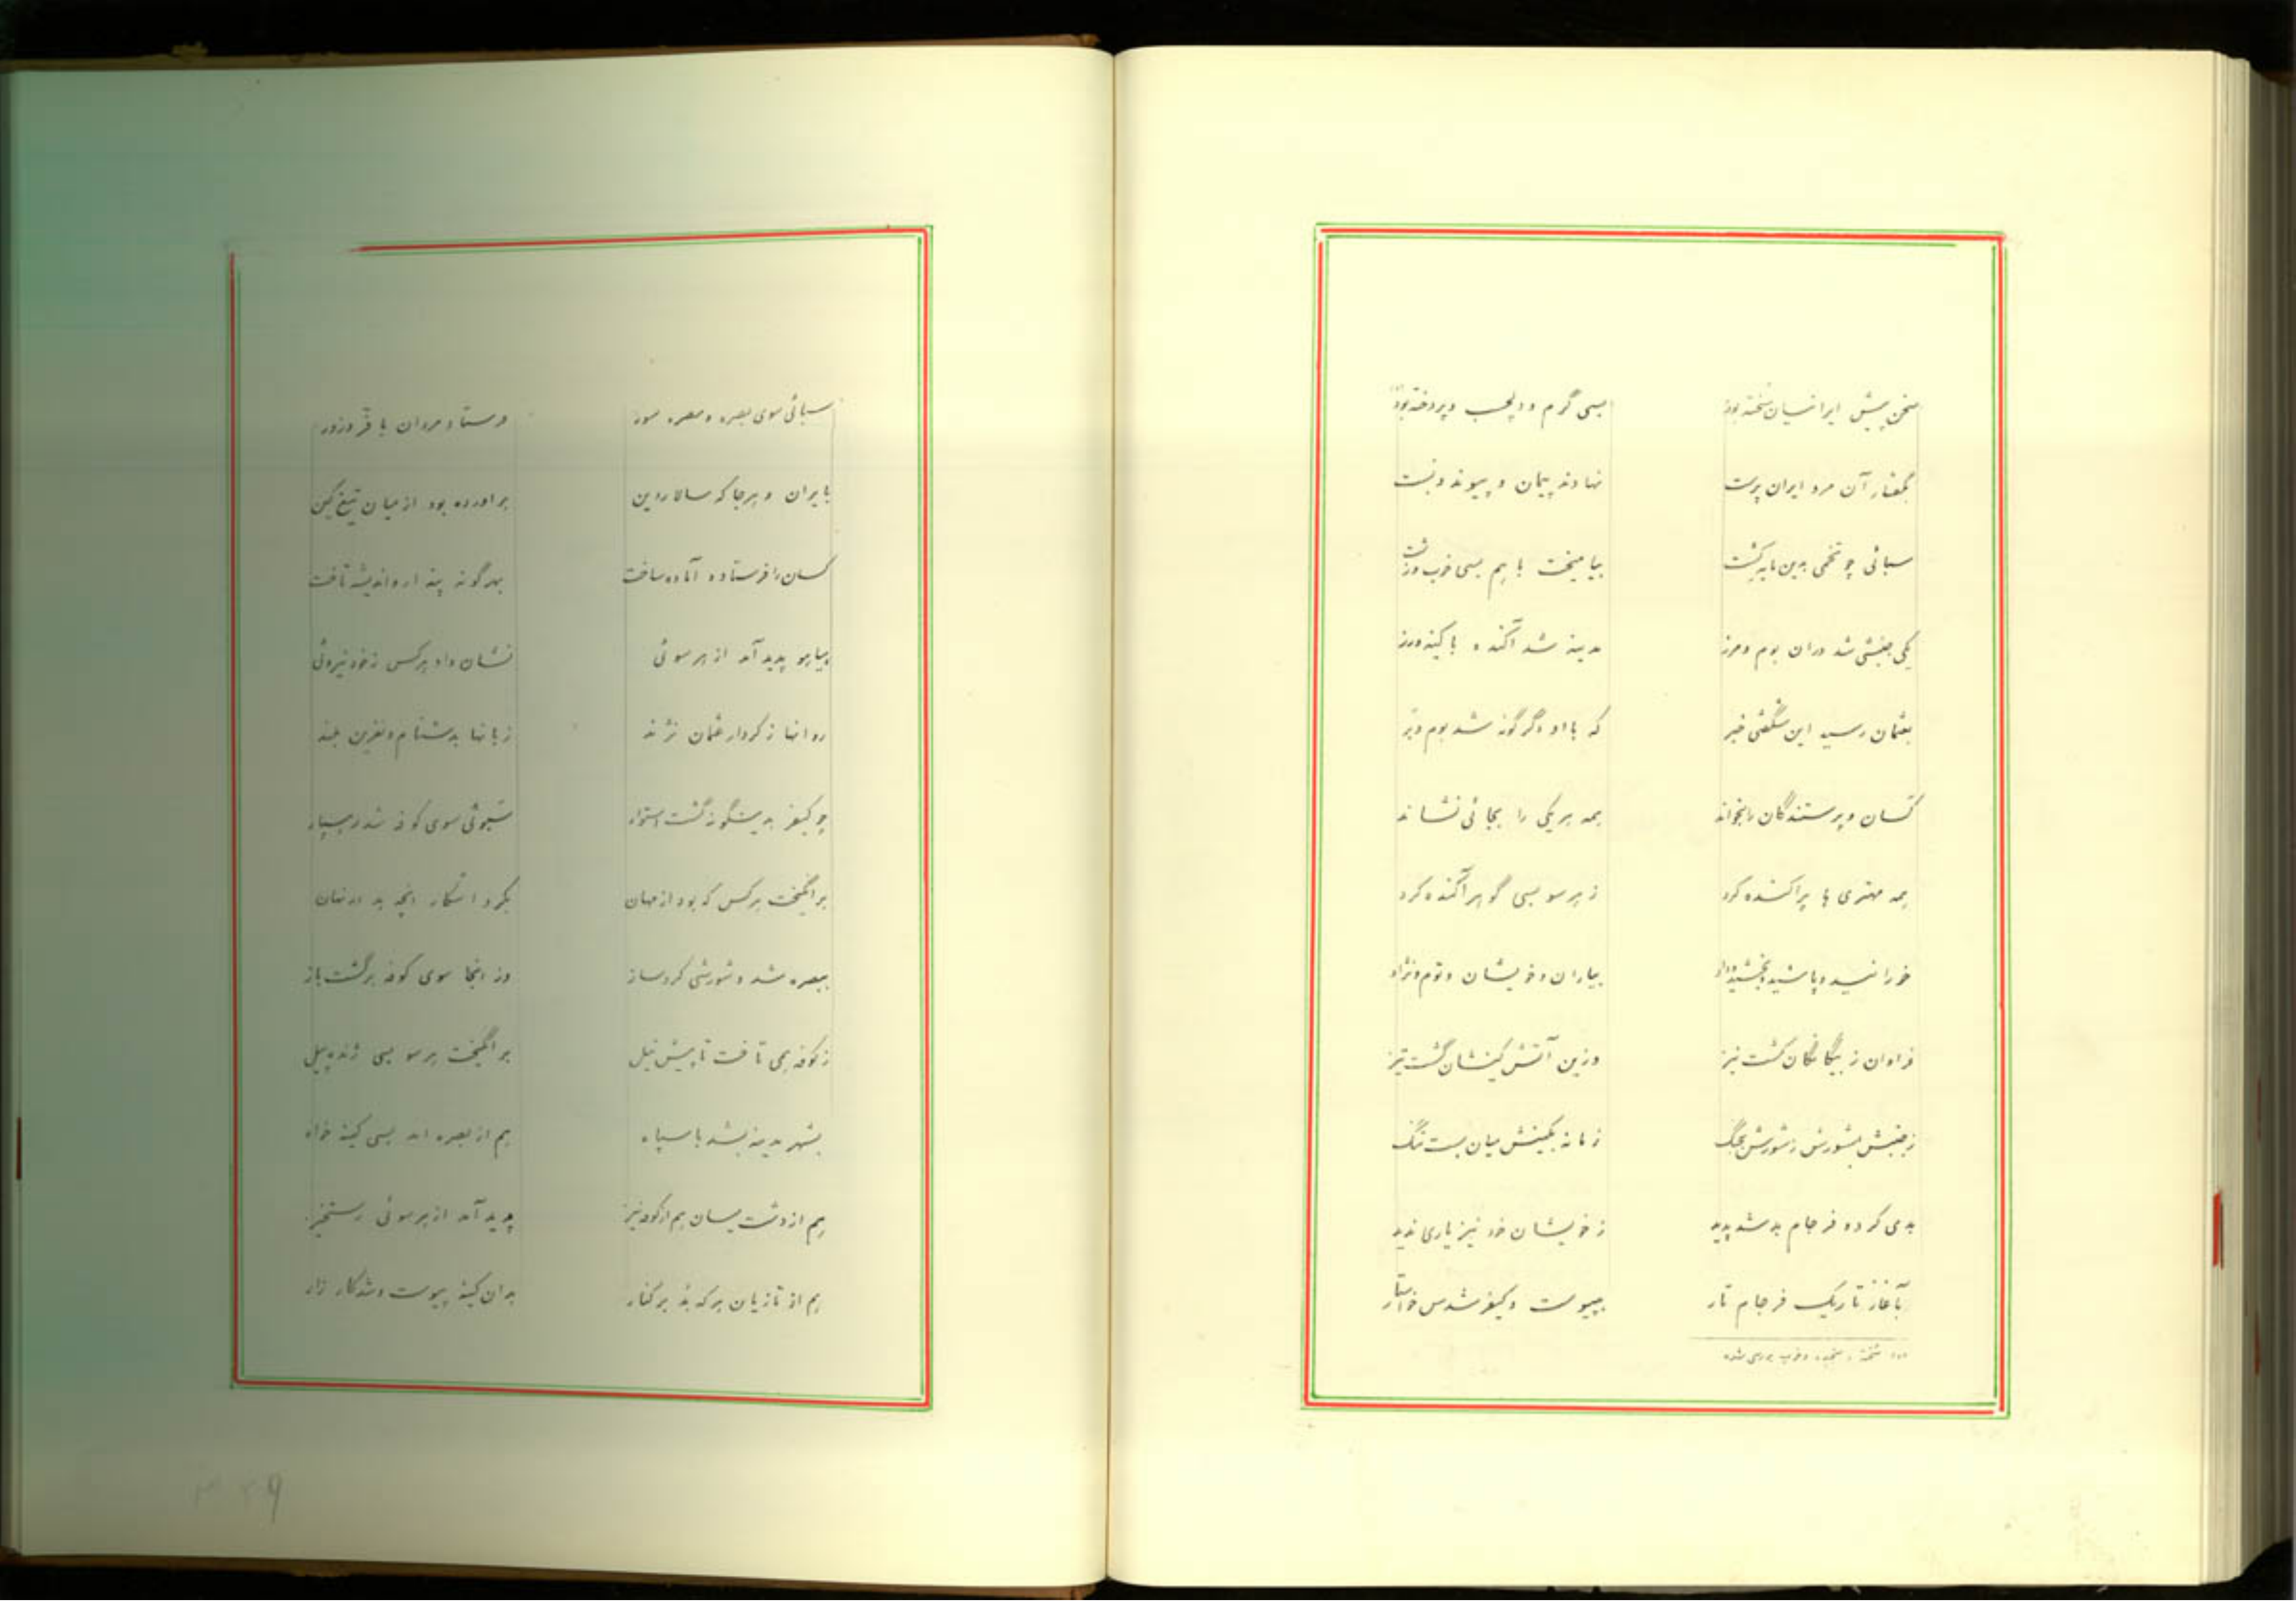 سخن پیش ایرانسیان سخته بود بسی گرم و دلچسب و پردخته بود (۱)
بگفتار آن مرد ایران پرست نهادند پیمان و پیوند و بست
سبائی چو تخمی بدین مایه کشت بیامیخت با هم بسی خوب و زشت
یکی جنبشی شد دران بوم و مرز مدینه شد آکنده با کینه ورز
بعثمان رسید این شگفتی خبر که با او دگرگونه شد بوم و بر
کسان و پرستندگان را بخواند همه هر یکی را بجائی نشاند
همه مهتری ها پراکنده کرد ز هر سو بسی گوهر آکنده کرد
خورانید و پاشید و بخشید و داد بیاران و خویشان و قوم و نژاد
فراوان ز بیگانگان کشت نیز وزین آتش کینشان گشت تیز
ز جنبش بشورش ز شورش بجنگ زمانه بکینش میان بست تنگ
بدی کرده فرجام بد شد پدید ز خویشان خود نیز یاری ندید
بآغاز تاریک فرجام تار بپیوست و کیفر شدس خواستار
(۱) سخته : سنجیده و خوب بررسی شده
سبائی سوی بصره و مصر و سور فرستاد مردان با فر و زور
بایران و هر جا که سالار دین براورده بود از میان تیغ کین
کسان را فرستاد و آماده ساخت بهر گونه پندار و اندیشه تاخت
هیاهو پدید آمد از هر سوئی نشان داد هر کس ز خود نیروئی
روانها ز کردار عثمان نژند زبانها بدشنام و نفرین بلند
چو کیفر بدینگونه گشت استوار سوی کوفه شد
برانگیخت هر کس که بود از مهان بکرد آشکار آنچه بد در نهان
ببصره شد و شورشی کرد ساز وز آنجا سوی کوفه برگشت باز
ز کوفه همی تاخت تا پیش نیل برانگیخت هر سو بسی ژنده پیل
بشهر مدینه بشد با سپاه هم از بصره آمد بسی کینه خواه
هم از دشت میسان هم از کوفه نیز پدید آمد از هر سوئی رستخیز
هم از تازیان هر که بد بر کنار بدان کینه پیوست و شد کار زار